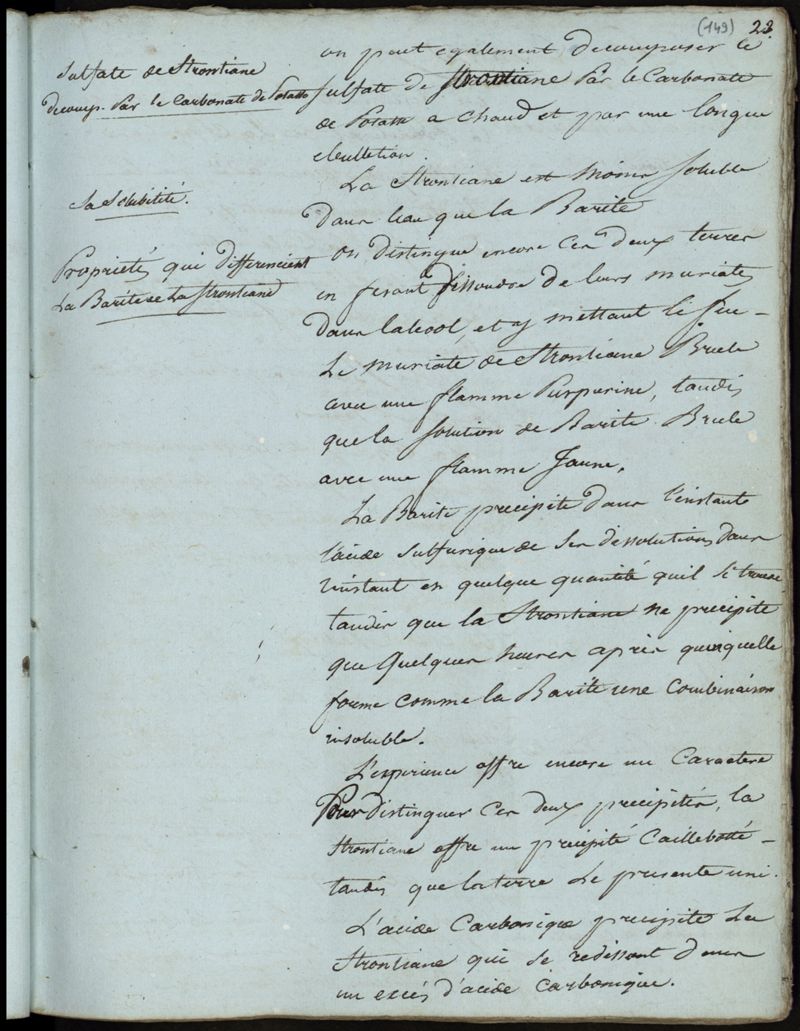 (149) 23
Sulfate de Strontiane
decomp. Par le Carbonate de Potasse
Sa Solubilité.
Propriétés qui differencient
La Barite de La Strontiane
on peut egalement decomposer le
sulfate de Strontiane Par le Carbonate
de Potasse a chaud et par une longue
ebullition.
La Strontiane est moins soluble
dans l'eau que la Barite
on distingue encore ces deux terres
en fesant dissoudre de leurs muriates
dans l'alcool, et y mettant le feu –
Le muriate de Strontiane Brule
avec une flamme Purpurine, tandis
que la solution de Barite Brule
avec une flamme Jaune.
La Barite precipite dans l'instant
l'acide sulfurique de ses dissolutions dans
l'instant en quelque quantité qu'il se trouve
tandis que la Strontiane ne precipite
que quelques heures après quoiquelle
forme comme la Barite une Combinaison
insoluble.
L'experience offre encore un Caractere
Pour distinguer ces deux precipités, la
Strontiane offre un précipité Caillebotté –
tandis que la terre le presente uni.
L'acide Carbonique precipite La
Strontiane qui se redissout dans
un excès d'acide Carbonique.